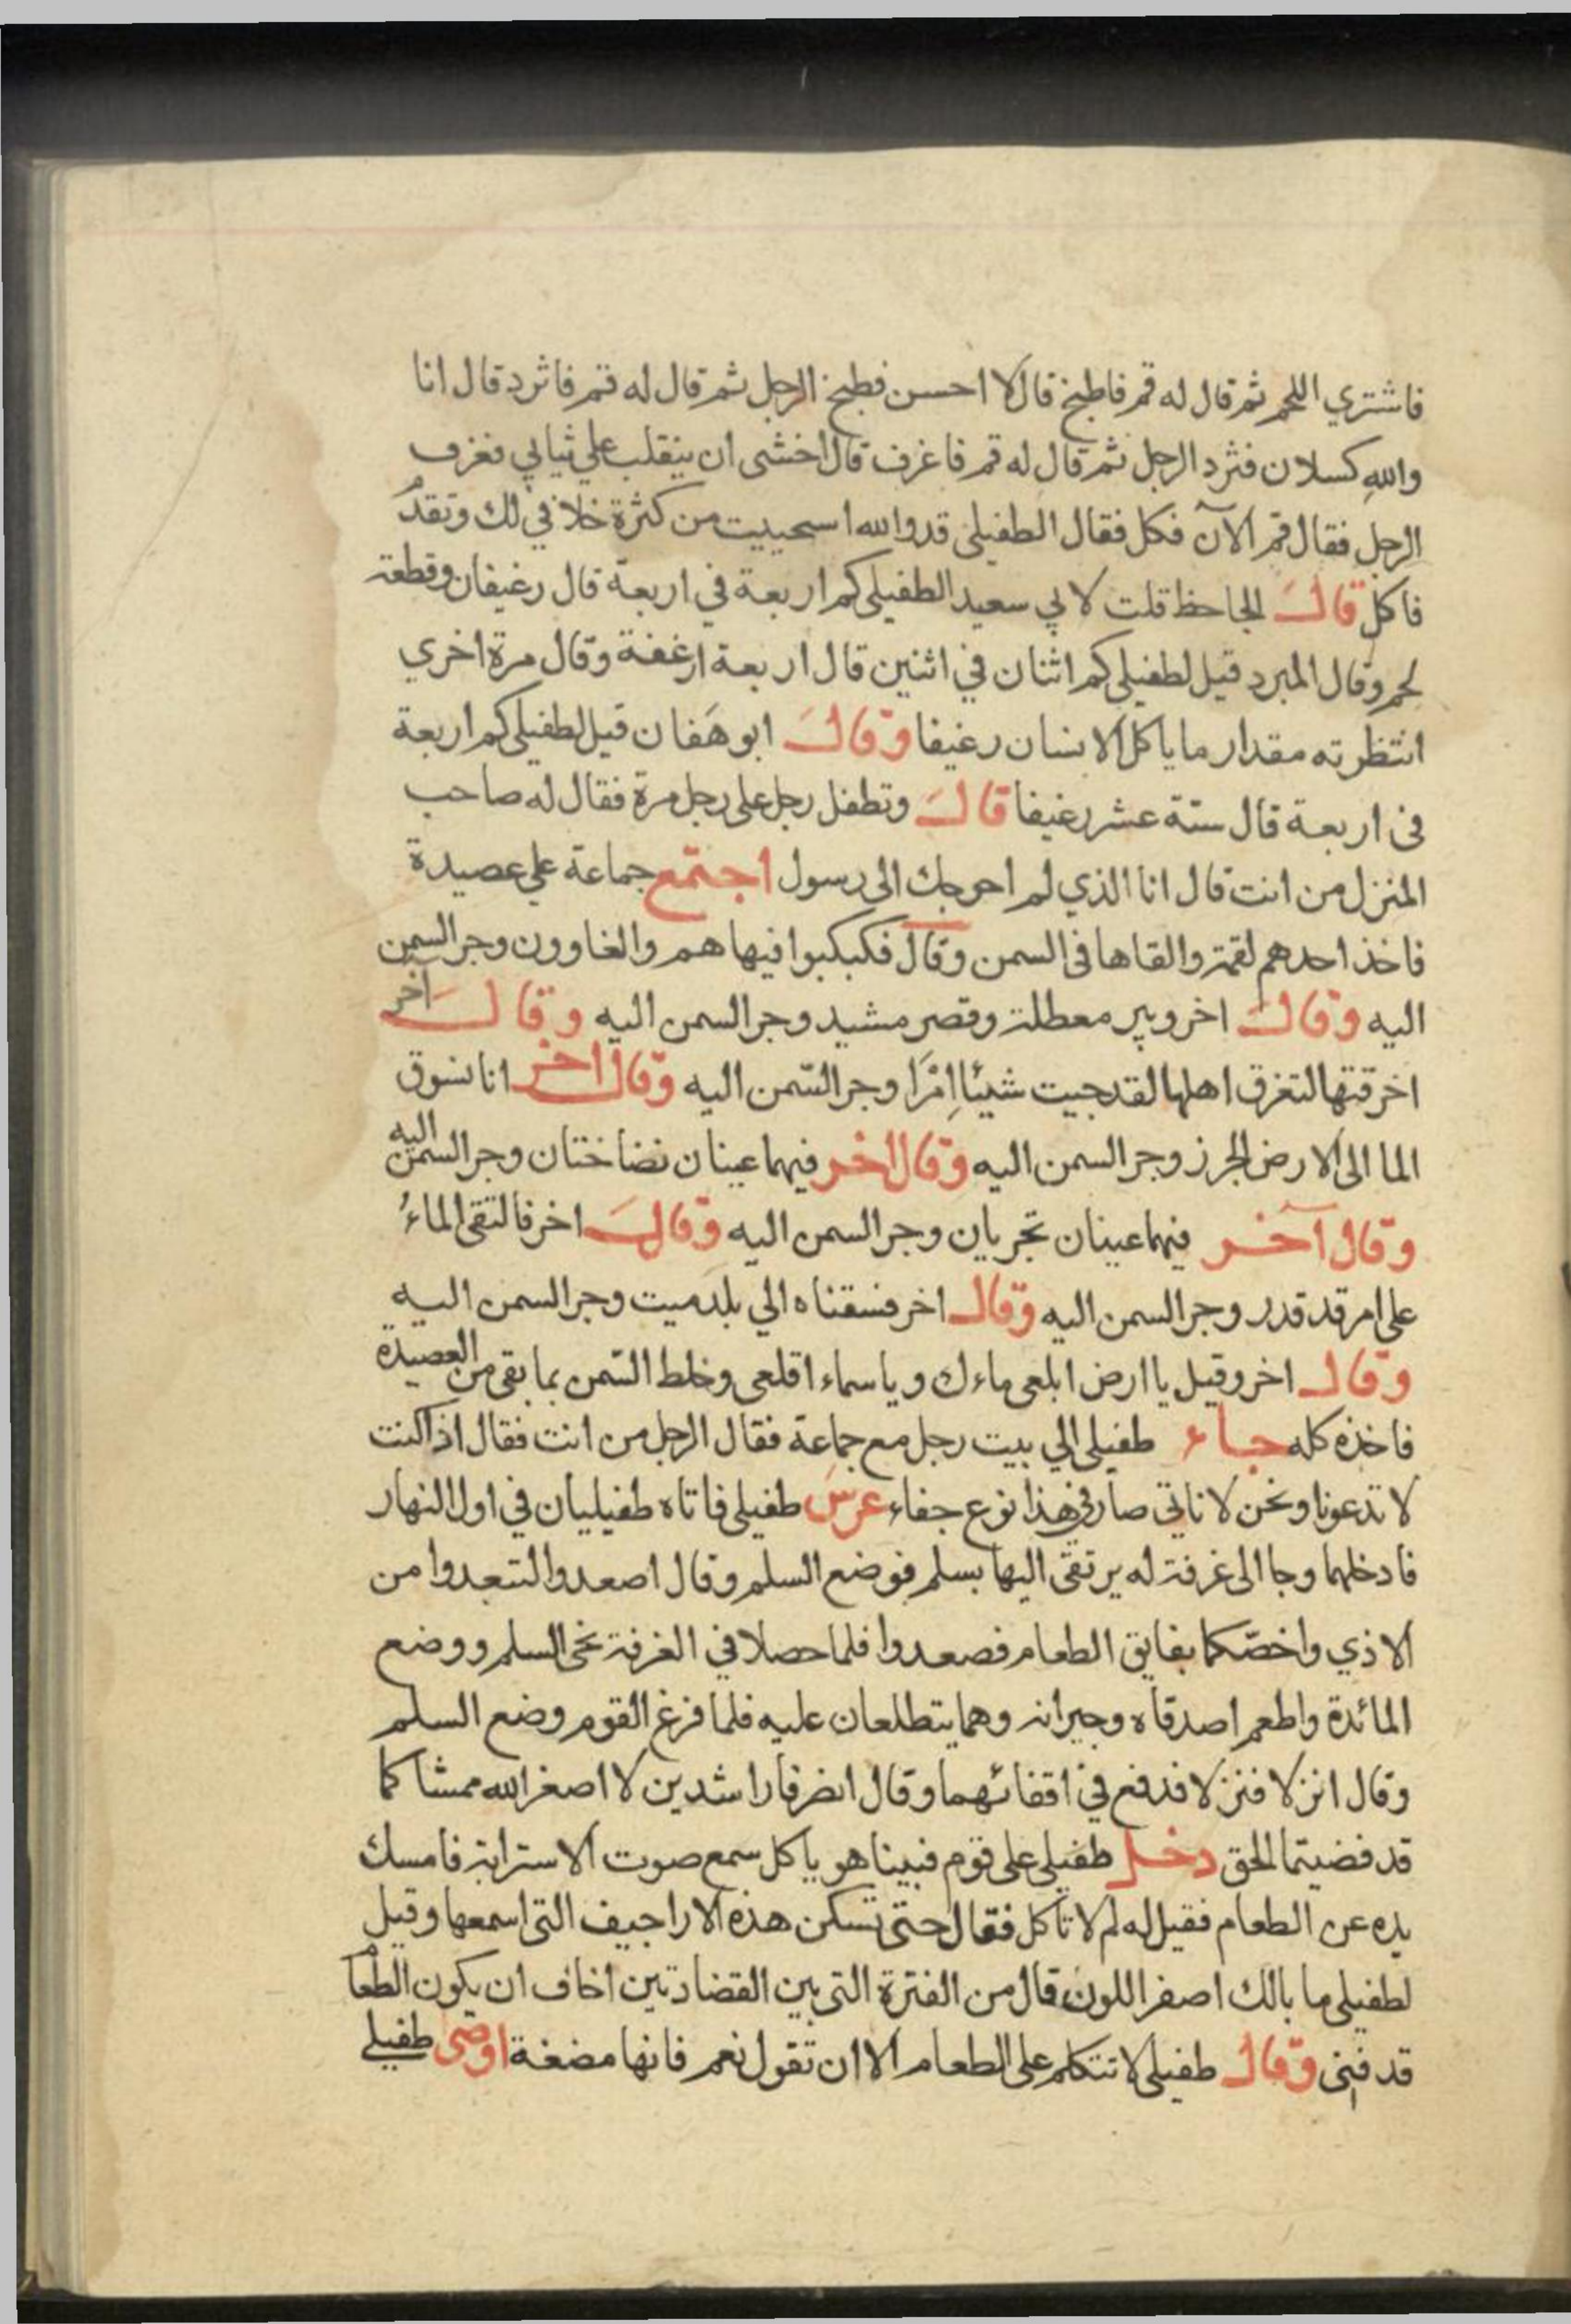 فاشتري اللحم ثم قال له قم فاطبخ قال لا احسن فطبخ الرجل ثم قال له قم فاثرد قال انا
والله كسلان فثرد الرجل ثم قال له قم فاغرف قال اخشى ان ينقلب علي ثيابي فغرف
الرجل فقال قم الآن فكل فقال الطفيلى قد والله استحييت من كثرة خلافي لك وتقدم
فاكل قال الجاحظ قلت لابي سعيد الطفيلى كم اربعة في اربعة قال رغيفان وقطعة
لحم وقال المبرد قيل لطفيلى كم اثنان في اثنين قال اربعة ارغفة وقال مرة اخري
انتظرته مقدار ما ياكل الانسان رغيفا وقال ابو هفان قيل لطفيلى كم اربعة
فى اربعة قال ستة عشر رغيفا قال وتطفل رجل على رجل مرة فقال له صاحب
المنزل من انت قال انا الذي لم احوجك الى رسول اجتمع جماعة علي عصيدة
فاخذ احدهم لقمة والقاها فى السمن وقال فكبكبوا فيها هم والغاوون وجر السمن
اليه وقال اخر وبير معطلة وقصر مشيد وجر السمن اليه وقال آخر
اخرقتها لتغرق اهلها لقد جيت شيئا اِمْرًا وجر السّمن اليه وقال اخر انا نسوق
الما الى الارض الجرز وجر السمن اليه وقال اخر فيهما عينان نضاختان وجر السمن اليه
وقال آخر فيهما عينان تجريان وجر السمن اليه وقال اخر فالتقى الماءُ
على امر قد قدر وجر السمن اليه وقال اخر فسقناه الي بلد ميت وجر السمن اليه
وقال اخر وقيل يا ارض ابلعى ماءك ويا سماء اقلعى وخلط السّمن بما بقى من العصيدة
فاخذه كله جاء طفيلى الي بيت رجل مع جماعة فقال الرجل من انت فقال اذا كنت
لا تدعونا ونحن لا ناتي صار في هذا نوع جفاء عرس طفيلى فاتاه طفيليان في اول النهار
فادخلهما وجا الى غرفة له يرتقى اليها بسلم فوضع السلم وقال اصعدوا لتبعدوا من
الاذي واخصّكما بفايق الطعام فصعدوا فلما حصلا في الغرفة نحى السلم ووضع
المائدة واطعم اصدقاه وجيرانه وهما يتطلعان عليه فلما فرغ القوم وضع السلم
وقال انزلا فنزلا فدفع في اقفائهما وقال انصرفا راشدين لا اصغر الله ممشاكما
قد قضيتما الحق دخل طفيلى على قوم فبينا هو ياكل سمع صوت الاسترابة فامسك
يده عن الطعام فقيل له لم لا تاكل فقال حتى تسكن هذه الاراجيف التى اسمعها وقيل
لطفيلى ما بالك اصفر اللون قال من الفترة التى بين القضادتين اخاف ان يكون الطعام
قد فنى وقال طفيلى لا تتكلم على الطعام الا ان تقول نعم فانها مضغة اوصى طفيلى